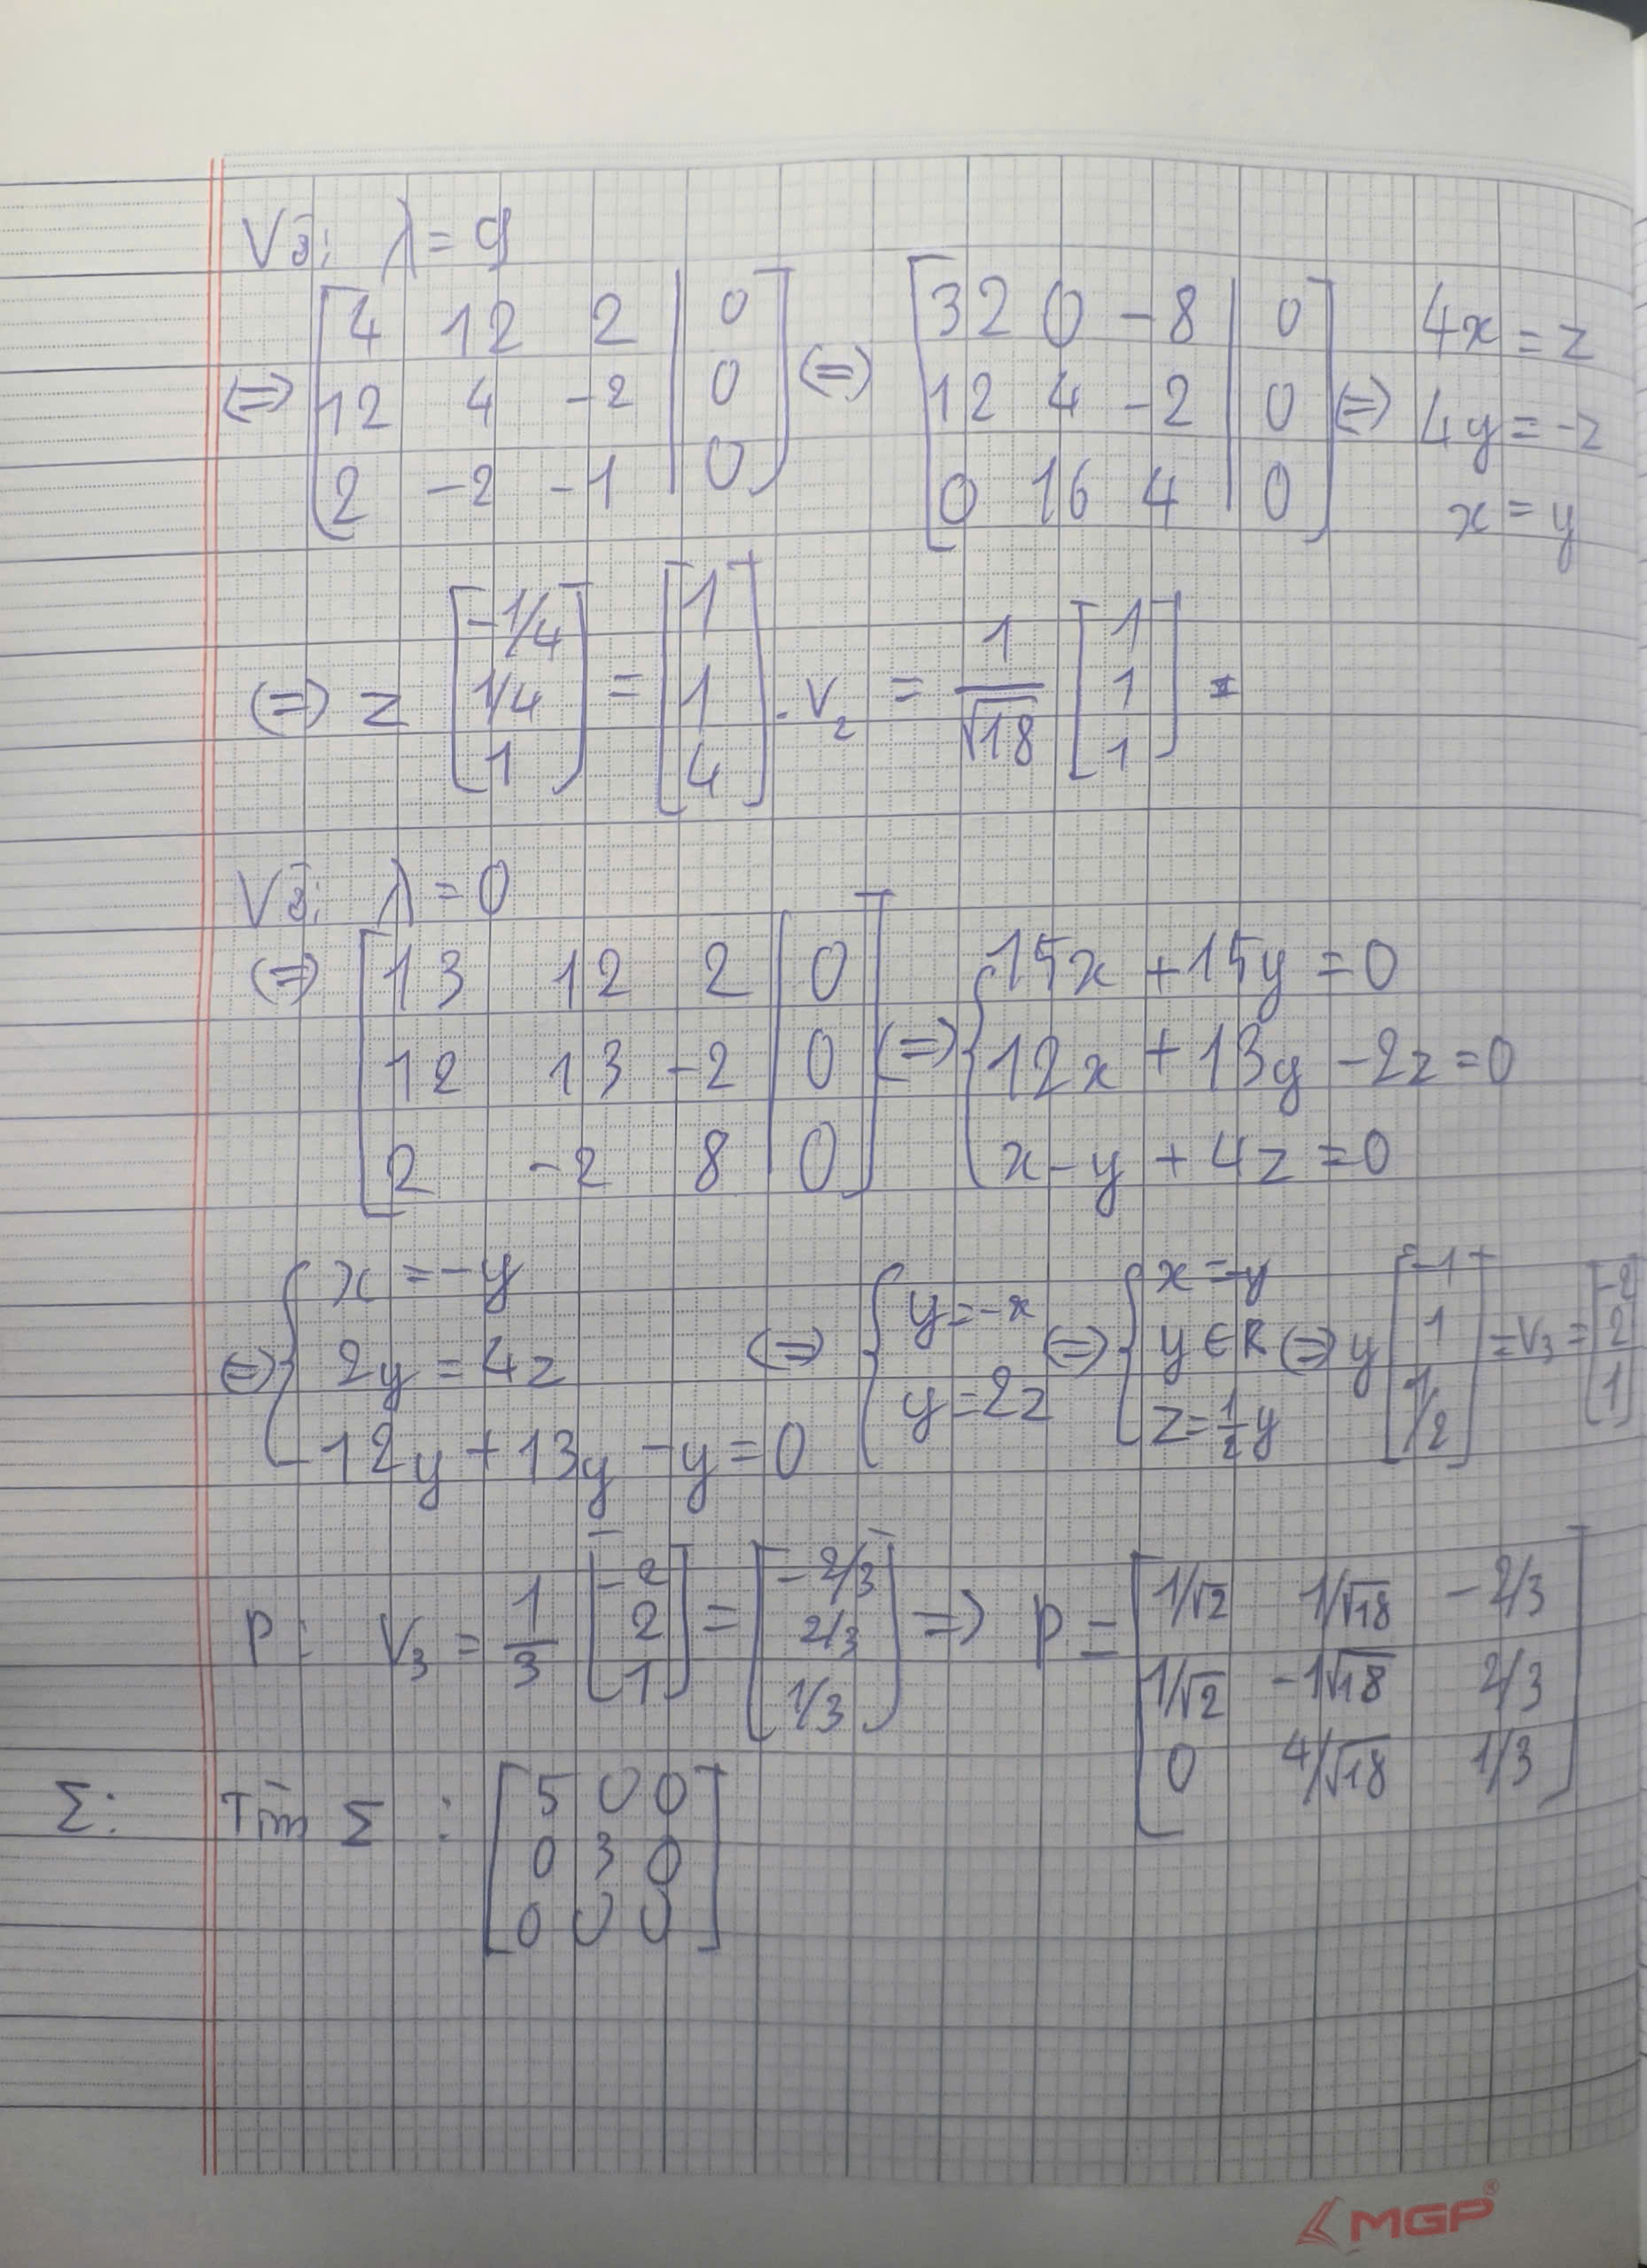 Với λ = 9
(=) [4 12 2 | 0; 12 4 -2 | 0; 2 -2 -1 | 0] (=) [32 0 -8 | 0; 12 4 -2 | 0; 0 16 4 | 0] (=) 4x = z
4y = -z
x = y
(=) z [-1/4; 1/4; 1] = [1; 1; 4] . v₂ = 1/√18 [1; 1; 1] =
Với λ = 0
(=) [13 12 2 | 0; 12 13 -2 | 0; 2 -2 8 | 0] (=) { 15x + 15y = 0
12x + 13y - 2z = 0
x - y + 4z = 0
(=) { x = -y
2y = 4z
12y + 13y - y = 0
(=) { y = -x
y = 2z
(=) { x = -y
y ∈ R
z = 1/2 y
(=) y [-1; 1; 1/2] = v₃ = [-2; 2; 1]
P: v₃ = 1/3 [-2; 2; 1] = [-2/3; 2/3; 1/3] => P = [1/√2 1/√18 -2/3; 1/√2 -1√18 2/3; 0 4/√18 1/3]
Σ: Tìm Σ : [5 0 0; 0 3 0; 0 0 0]
MGP®